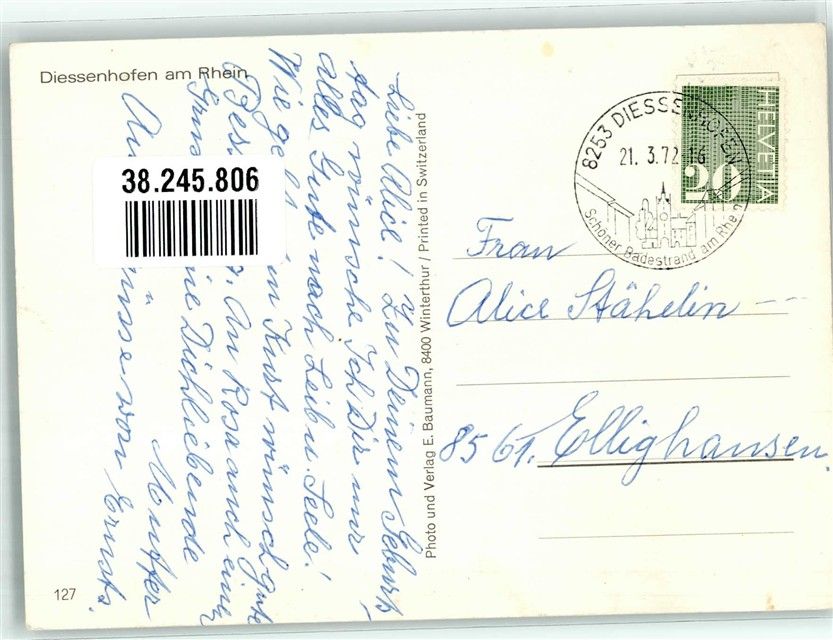 Diessenhofen am Rhein
Liebe Alice! Zu Deinem Geburts-
tag wünsche Ich Dir nur
alles Gute nach Leib u. Seele!
Wie geht Kurt wünsch gute
Bes. An Rosa auch eine
Dichliebende
Mutter
von Ernsts.
127
38.245.806
Photo und Verlag E. Baumann, 8400 Winterthur / Printed in Switzerland
8253 DIESSENHOFEN
21. 3.72-16
Schöner Badestrand am Rhein
HELVETIA
20
Frau
Alice Stähelin
8561. Ellighausen.